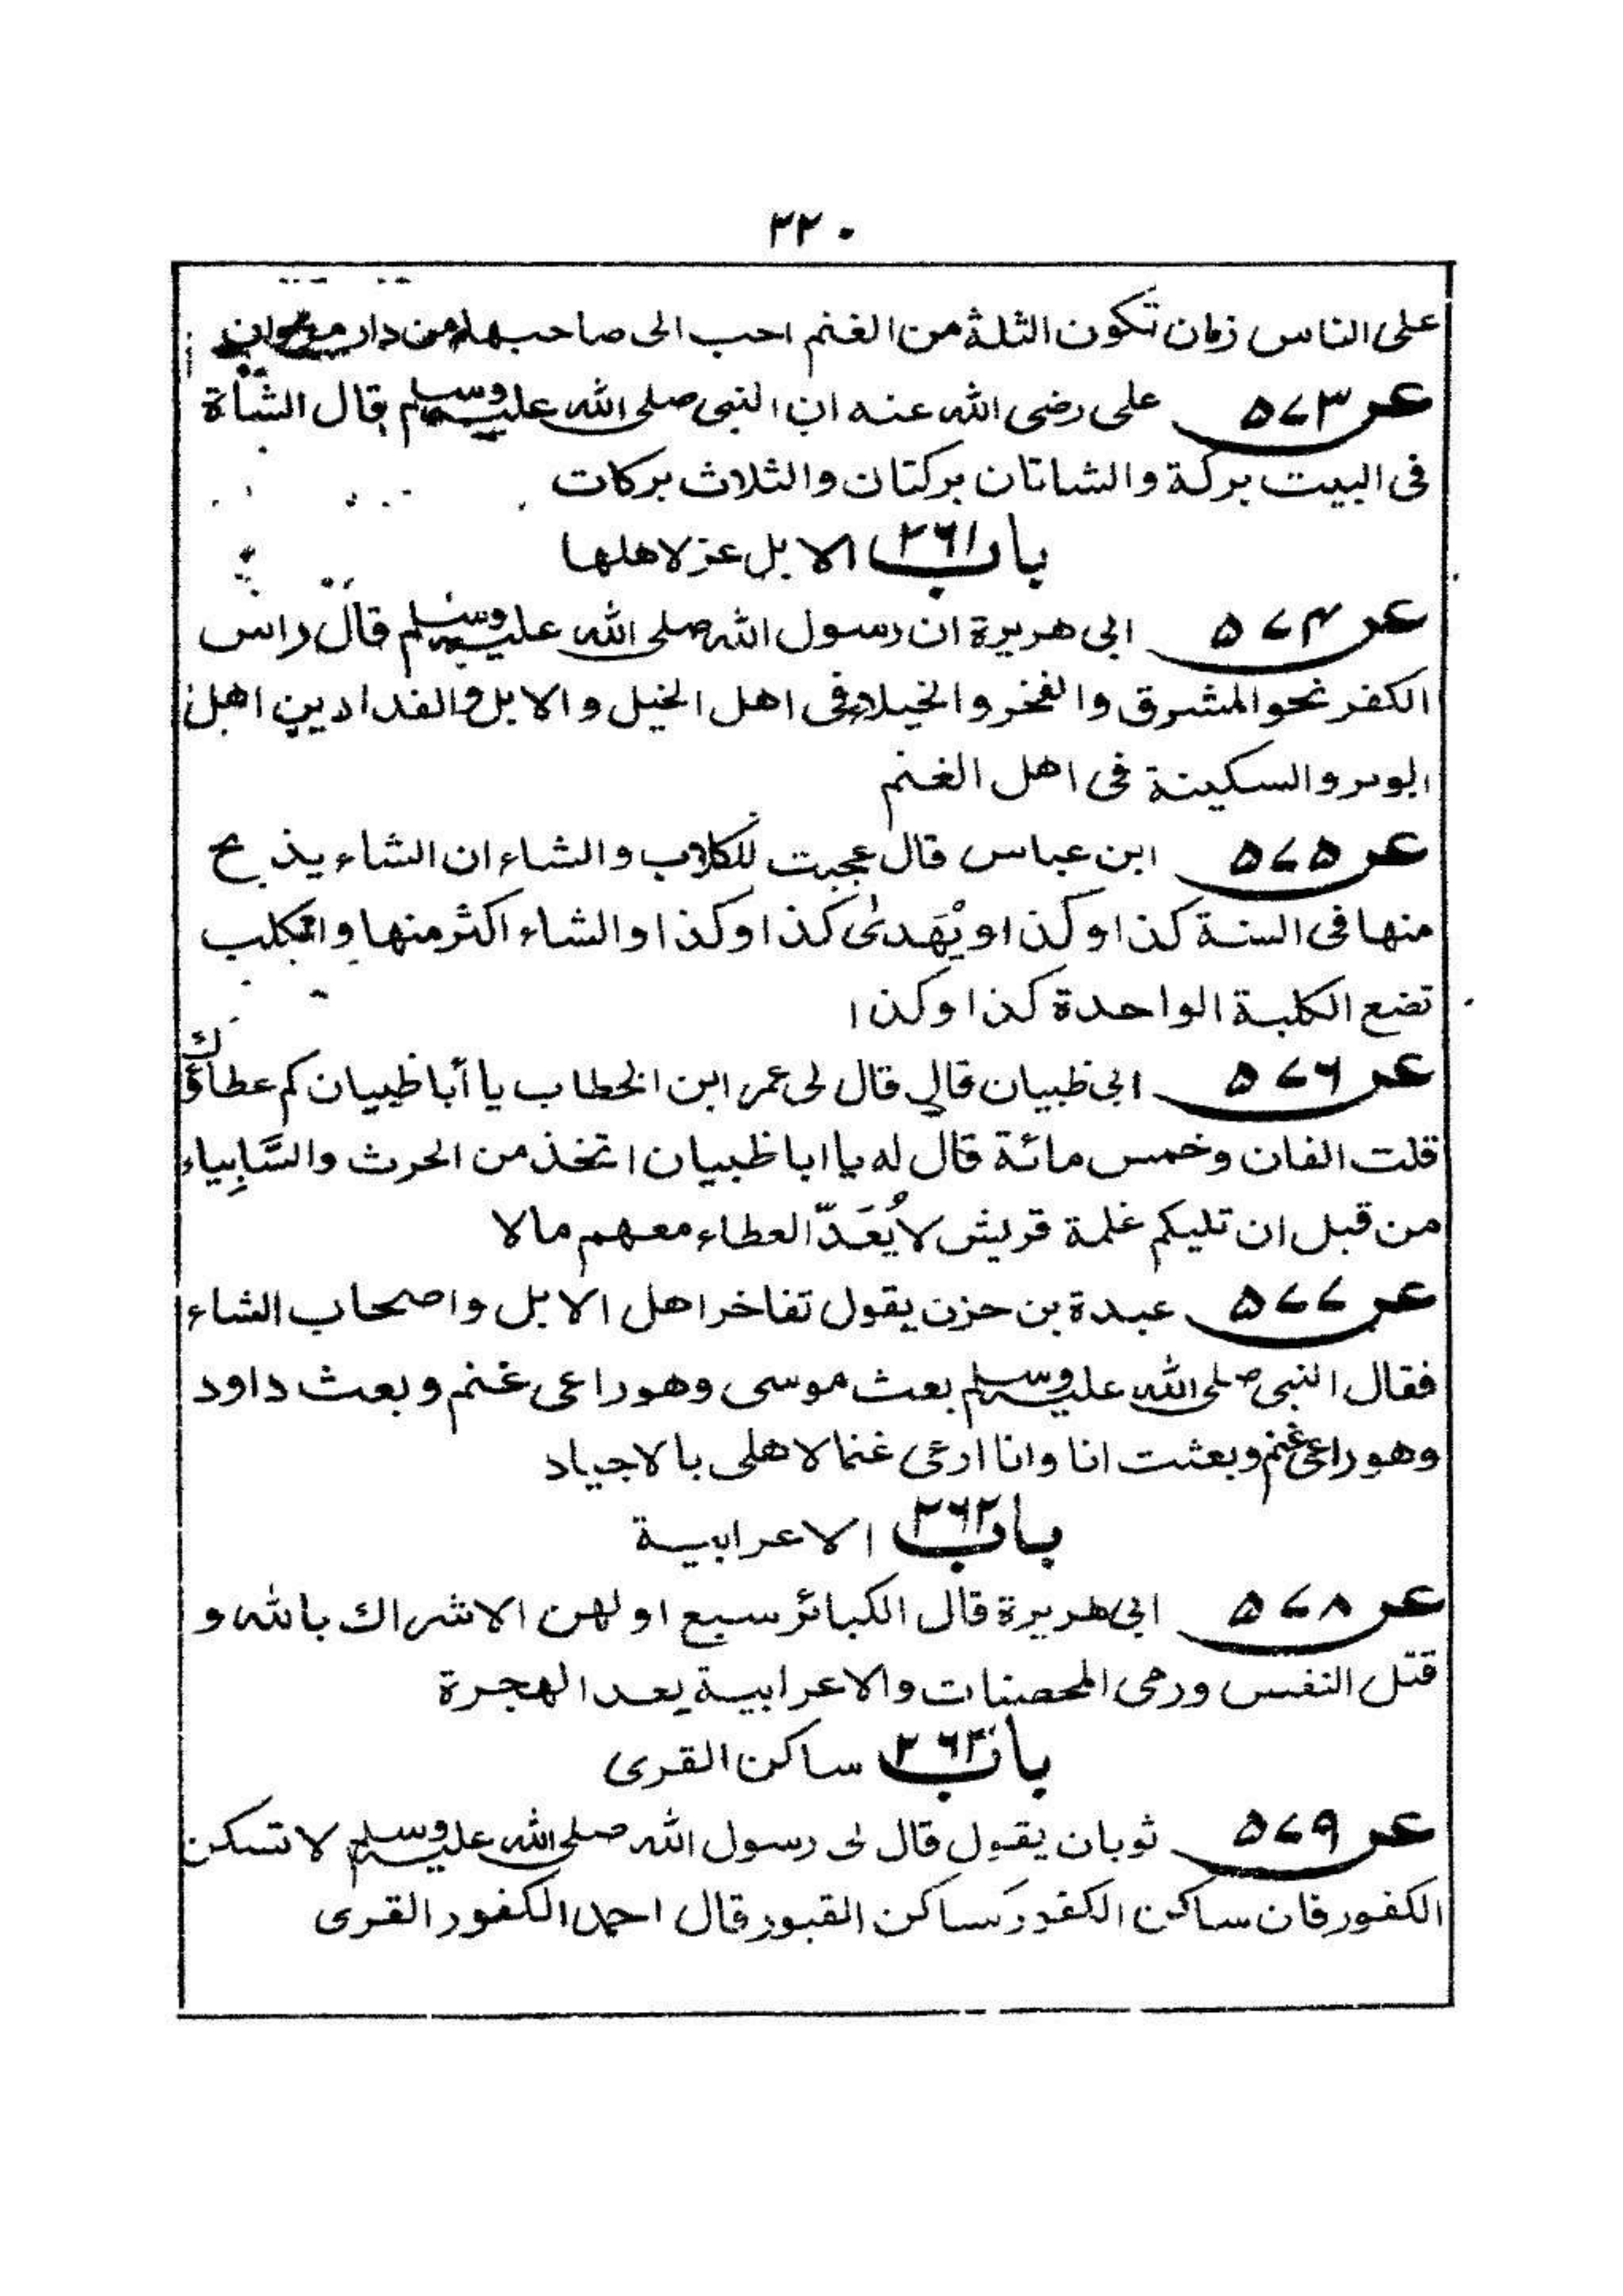 ۲۲۰
على الناس زمان تكون الثلة من الغنم احب الى صاحبها من دار مروان
عن ۵۷۳ على رضى الله عنه ان النبى صلى الله عليه وسلم قال الشاة
فى البيت بركة والشاتان بركتان والثلاث بركات
باب ۲۶۱ الابل عز لاهلها
عن ۵۷۴ ابى هريرة ان رسول الله صلى الله عليه وسلم قال راس
الكفر نحو المشرق والفخر والخيلاء فى اهل الخيل والابل والفدادين اهل
الوبر والسكينة فى اهل الغنم
عن ۵۷۵ ابن عباس قال عجبت للكلاب والشاء ان الشاء يذبح
منها فى السنة كذا وكذا ويُهدىٰ كذا وكذا والشاء اكثر منها والكلب
تضع الكلبة الواحدة كذا وكذا
عن ۵۷۶ ابى ظبيان قال قال لى عمر ابن الخطاب يا أبا ظبيان كم عطاؤك
قلت الفان وخمس مائة قال له يا ابا ظبيان اتخذ من الحرث والسَّابِياء
من قبل ان تليكم غلمة قريش لا يُعَدّ العطاء معهم مالا
عن ۵۷۷ عبدة بن حزن يقول تفاخر اهل الابل واصحاب الشاء
فقال النبى صلى الله عليه وسلم بعث موسى وهو راعى غنم وبعث داود
وهو راعى غنم وبعثت انا وانا ارعى غنما لاهلى بالاجياد
باب ۲۶۲ الاعرابية
عن ۵۷۸ ابى هريرة قال الكبائر سبع اولهن الاشراك بالله و
قتل النفس ورمى المحصنات والاعرابية بعد الهجرة
باب ۲۶۳ ساكن القرى
عن ۵۷۹ ثوبان يقول قال لى رسول الله صلى الله عليه وسلم لا تسكن
الكفور فان ساكن الكفور كساكن القبور قال احمد الكفور القرى